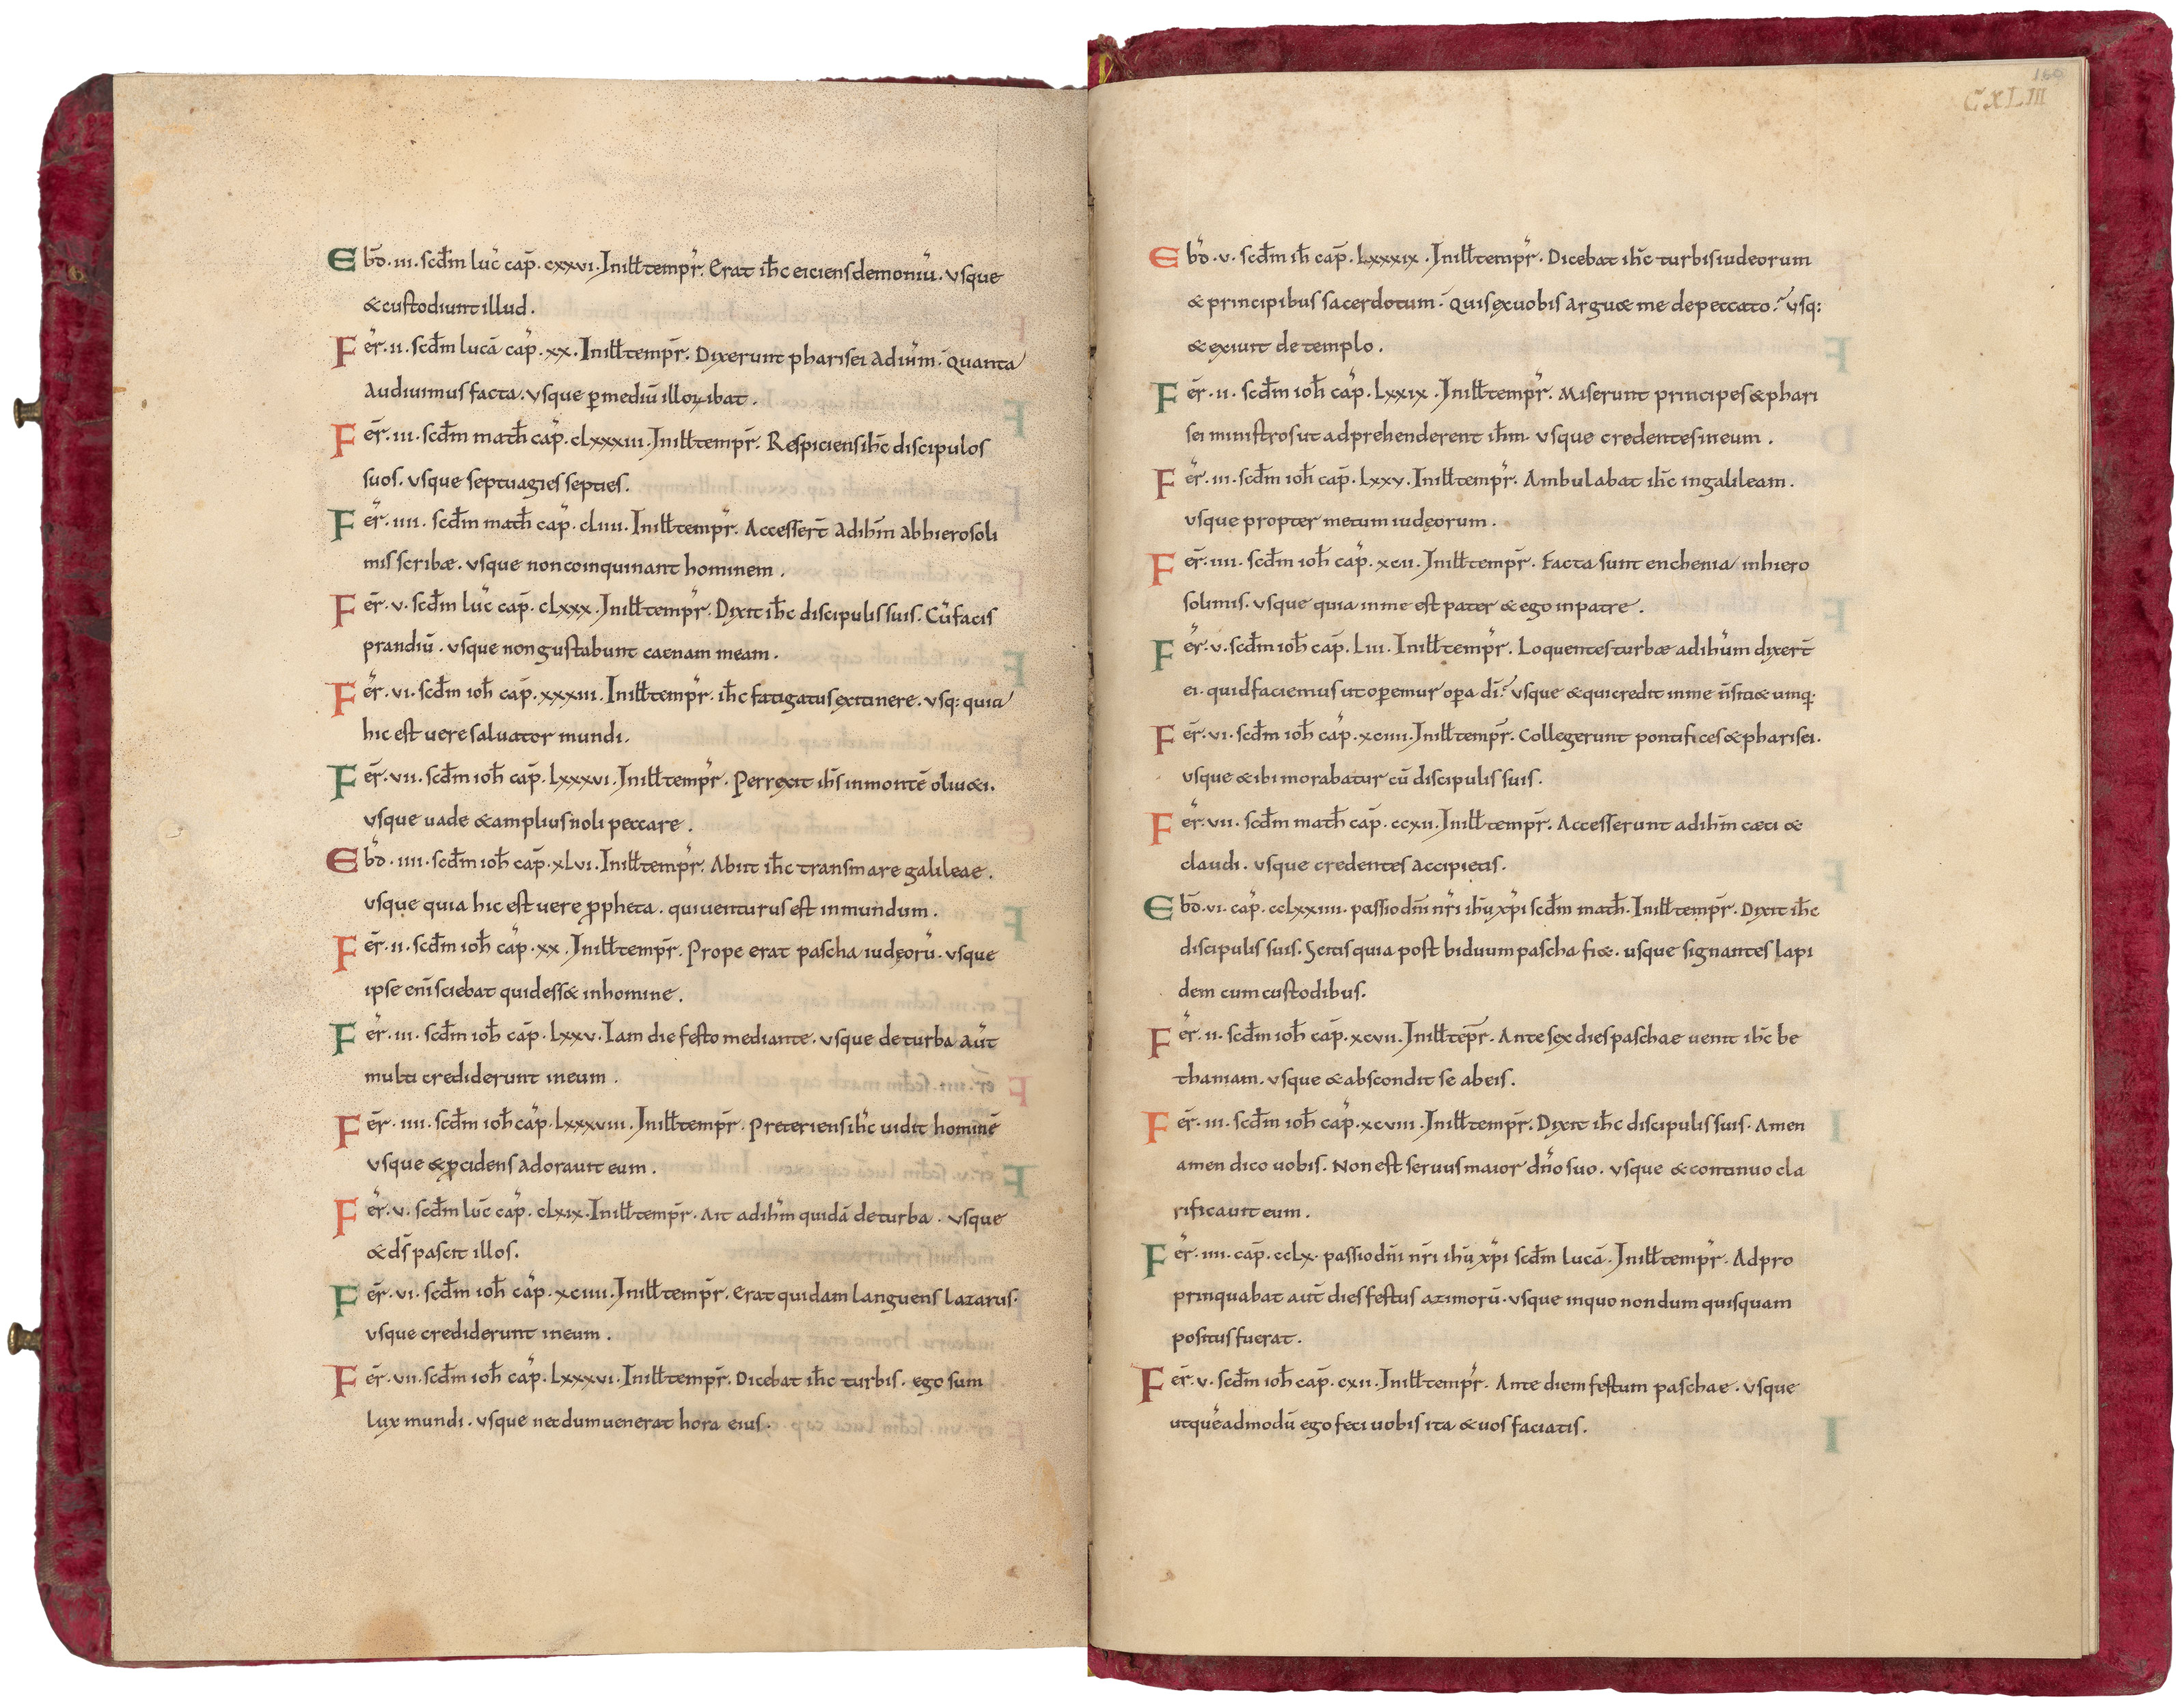 Ebd̄·iii·scd̄m luc̄ cap̄·cxxvi·Jnill̄ temp̄r·Erat ih̄c eiciens demoniū·vsque
&custodiunt illud.
Fer̄·ii·scd̄m lucā cap̄·xx·Inill̄ temp̄r·Dixerunt pharisei ad ih̄m·quanta
audiuimus facta·vsque p̱ mediū illoꝝ ibat.
Fer̄·iii·scd̄m math̄ cap̄·clxxxiii·Jnill̄ temp̄r·Respiciens ih̄c discipulos
suos·vsque septuagies septies.
Fer̄·iiii·scd̄m math̄ cap̄·cliiii·Inill̄ temp̄r·Accesser̄t ad ih̄m ab hierosoli
mis scribæ·vsque non coinquinant hominem.
Fer̄·v·scd̄m luc̄ cap̄·clxxx·Jnill̄ temp̄r·Dixit ih̄c discipulis suis·Cū facis
prandiū·vsque non gustabunt caenam meam.
Fer̄·vi·scd̄m ioh̄ cap̄·xxxiii·Inill̄ temp̄r·ih̄c fatigatus ex itinere·vsq: quia
hic est uere saluator mundi.
Fer̄·vii·scd̄m ioh̄ cap̄·lxxxvi·Jnill̄ temp̄r·Perrexit ih̄s in montē oliu&i.
vsque uade &amplius noli peccare.
Ebd̄·iiii·scd̄m ioh̄ cap̄·xlvi·Inill̄ temp̄r·Abiit ih̄c trans mare galileae.
vsque quia hic est uere ꝓpheta·qui uenturus est in mundum.
Fer̄·ii·scd̄m ioh̄ cap̄·xx·Jnill̄ temp̄r·Prope erat pascha iudęorū·vsque
ipse eni̅ sciebat quid ess& in homine.
Fer̄·iii·scd̄m ioh̄ cap̄·lxxv·Iam die festo mediante·vsque de turba aūt
multi crediderunt in eum.
Fer̄·iiii·scd̄m ioh̄ cap̄·lxxxviii·Jnill̄ temp̄r·Preteriens ih̄c uidit hominē
vsque &ꝓcidens adorauit eum.
Fer̄·v·scd̄m luc̄ cap̄·clxix·Inill̄ temp̄r·Ait ad ih̄m quidā de turba·vsque
&ds̄ pascit illos.
Fer̄·vi·scd̄m ioh̄ cap̄·xciiii·Jnill̄ temp̄r·Erat quidam languens lazarus·
vsque crediderunt in eum.
Fer̄·vii·scd̄m ioh̄ cap̄·lxxxvi·Inill̄ temp̄r·Dicebat ih̄c turbis·ego sum
lux mundi·vsque necdum uenerat hora eius.
160
CXLIII
Ebd̄·v·scd̄m ih̄ cap̄·lxxxix·Jnill̄ temp̄r·Dicebat ih̄c turbis iudeorum
&principibus sacerdotum·quis ex uobis argu& me de peccato? Vsq:
&exiuit de templo.
Fer̄·ii·scd̄m ioh̄ cap̄·lxxix·Jnill̄ temp̄r·Miserunt principes &phari
sei ministros ut adprehenderent ih̄m·vsque credentes in eum.
Fer̄·iii·scd̄m ioh̄ cap̄·lxxv·Inill̄ temp̄r·Ambulabat ih̄c in galileam.
vsque propter metum iudęorum.
Fer̄·iiii·scd̄m ioh̄ cap̄·xcii·Jnill̄ temp̄r·Facta sunt enchenia in hiero
solimis·vsque quia in me est pater & ego in patre.
Fer̄·v·scd̄m ioh̄ cap̄·liii·Inill̄ temp̄r·Loquentes turbæ ad ihūm dixer̄t
ei·quid faciemus ut op̱emur op̱a dī? vsque &qui credit in me n̄ siti& umq̱·
Fer̄·vi·scd̄m ioh̄ cap̄·xciiii·Jnill̄ temp̄r·Collegerunt pontifices &pharisei.
vsque &ibi morabatur cū discipulis suis.
Fer̄·vii·scd̄m math̄ cap̄·ccxii·Jnill̄ temp̄r·Accesserunt ad ih̄m cæci &
claudi·vsque credentes accipietis.
Ebd̄·vi·cap̄·cclxxiiii·passio dn̄i nr̄i ih̄u xp̄i scd̄m math̄·Inill̄ temp̄r·Dixit ih̄c
discipulis suis·Scitis quia post biduum pascha fi&·usque signantes lapi
dem cum custodibus.
Fer̄·ii·scd̄m ioh̄ cap̄·xcvii·Jnill̄ tep̄r·Ante sex dies paschae uenit ih̄c be
thaniam·vsque &abscondit se ab eis.
Fer̄·iii·scd̄m ioh̄ cap̄·xcviii·Jnill̄ temp̄r·Dixit ih̄c discipulis suis·Amen
amen dico uobis·Non est seruus maior dn̄o suo·vsque &continuo cla
rificauit eum.
Fer̄·iiii·cap̄·cclx·passio dn̄i nr̄i ih̄u xp̄i scd̄m lucā·Jnill̄ temp̄r·Adpro
prinquabat aūt dies festus azimorū·vsque in quo nondum quisquam
positus fuerat.
Fer̄·v·scd̄m ioh̄ cap̄·cxii·Jnill̄ temp̄r·Ante diem festum paschae·vsque
ut quēadmodū ego feci uobis ita &uos faciatis.